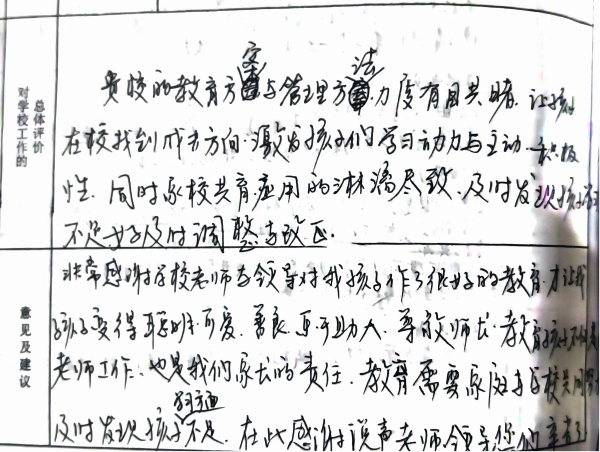 对学校工作的
总体评价
贵校的教育方案与管理方法力度有目共睹.让孩
在校找到成才方向.激发孩子们学习动力与主动 积极
性.同时家校共育应用的淋漓尽致.及时发现孩子
不足好及时调整与改正.
意见及建议
非常感谢学校老师与领导对我孩子作了很好的教育.才让我
孩子变得聪明.可爱.善良.乐于助人.尊敬师长.教育孩子不仅是
老师工作.也是我们家长的责任.教育需要家庭与学校共同
及时发现孩子不足.在此感谢说声老师领导您们辛苦了